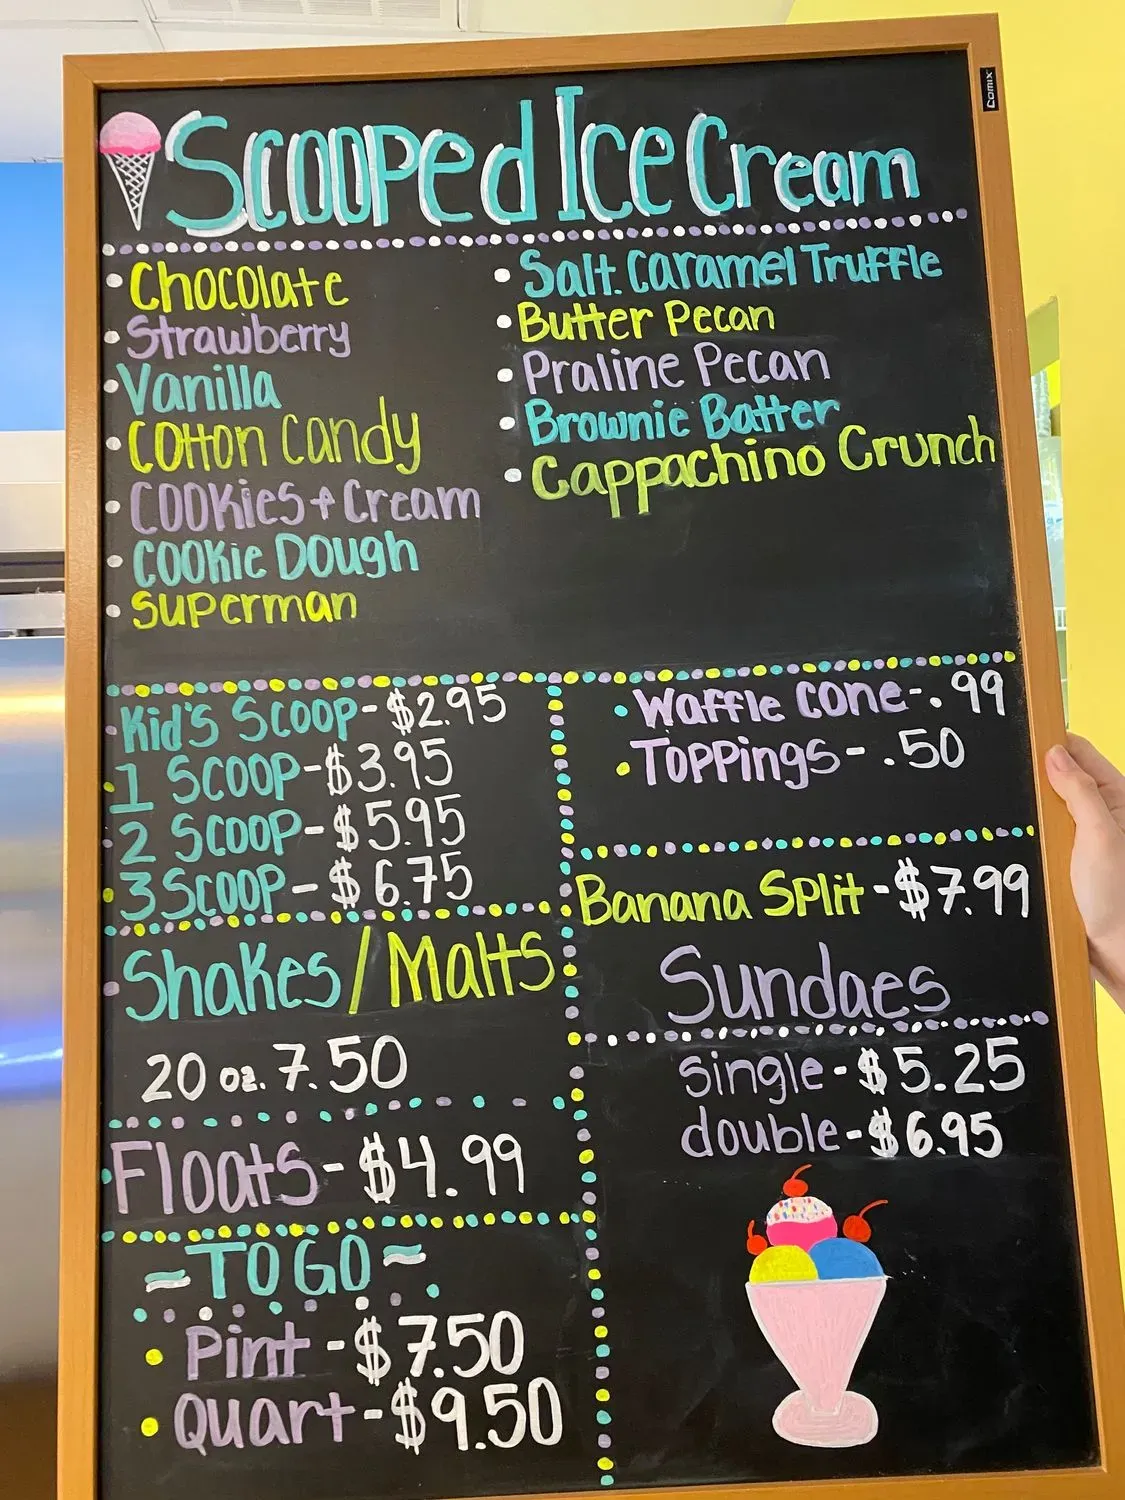 Scooped Ice Cream
Comix
Chocolate
Strawberry
Vanilla
Cotton Candy
Cookies + Cream
Cookie Dough
Superman
Salt. Caramel Truffle
Butter Pecan
Praline Pecan
Brownie Batter
Cappachino Crunch
Kid's Scoop - $2.95
1 Scoop - $3.95
2 Scoop - $5.95
3 Scoop - $6.75
Shakes / Malts
20 oz. 7.50
Floats - $4.99
~ TO GO ~
Pint - $7.50
Quart - $9.50
Waffle Cone - .99
Toppings - .50
Banana Split - $7.99
Sundaes
single - $5.25
double - $6.95